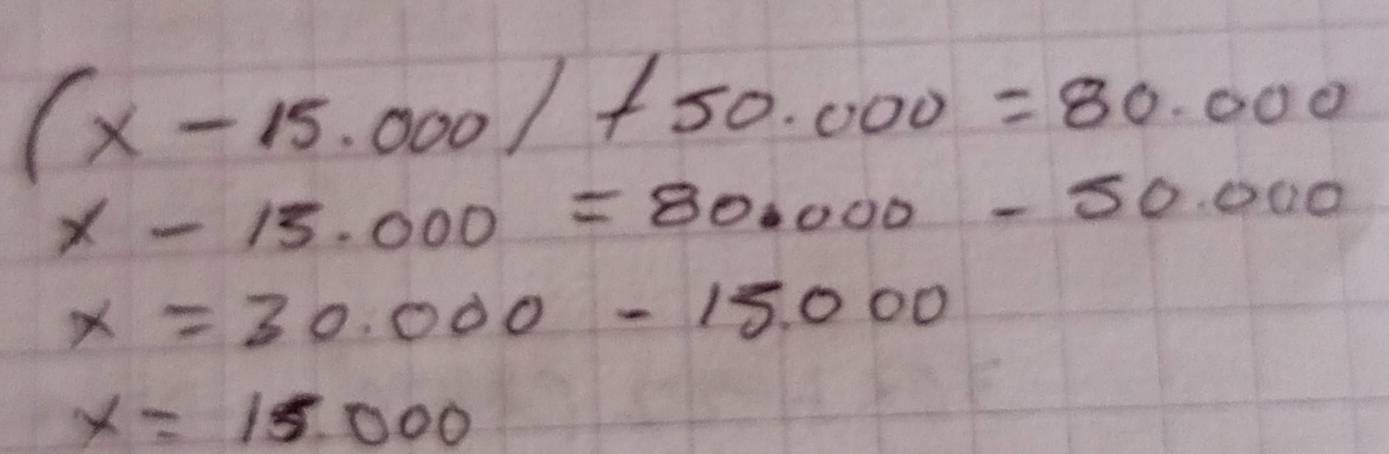 (x - 15.000) + 50.000 = 80.000
x - 15.000 = 80.000 - 50.000
x = 30.000 - 15.000
x = 15.000